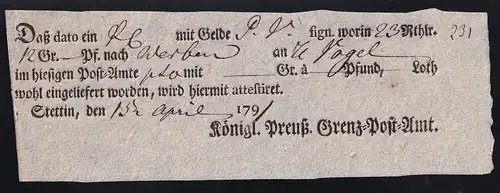 Daß dato ein PC mit Gelde P. V. sign. worin 23 Rthlr. 231
12 Gr. — Pf. nach Werben an Vogel
im hiesigen Post-Amte mit — Gr. à Pfund, Loth
wohl eingeliefert worden, wird hiermit attestiret.
Stettin, den 15 April 1791
Königl. Preuß. Grenz-Post-Amt.